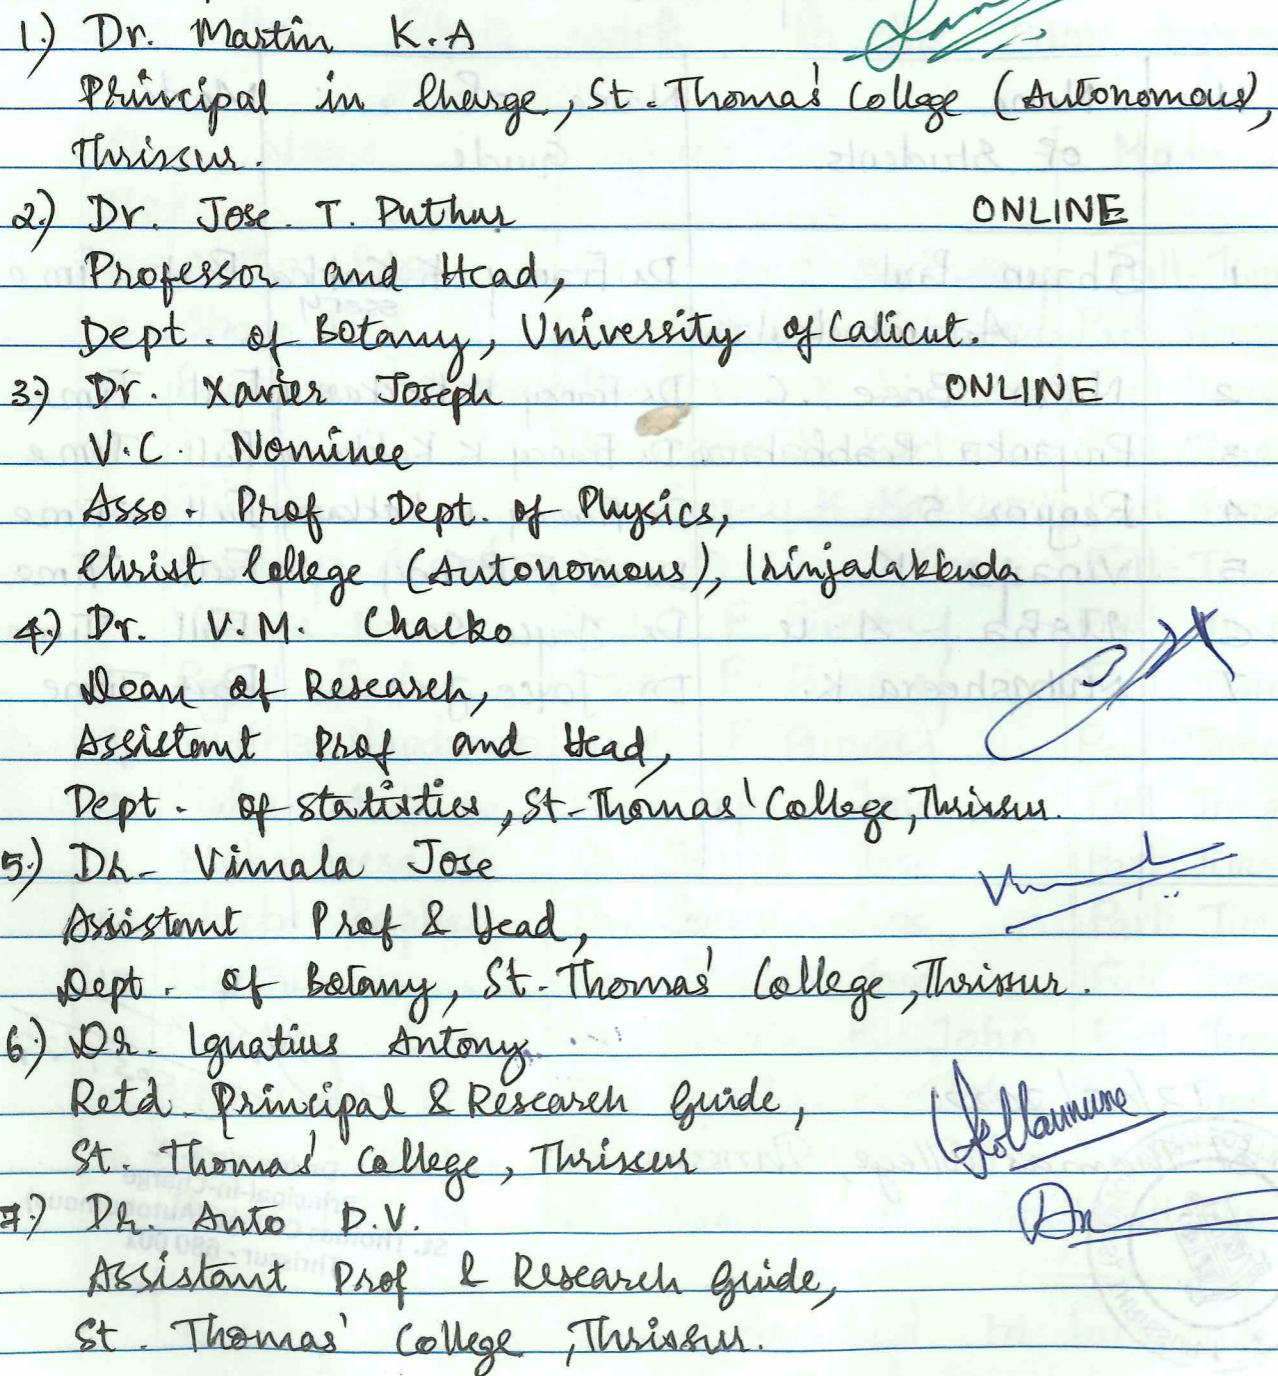 1.) Dr. Martin K.A
Principal in Charge, St. Thomas' College (Autonomous),
Thrissur.
2.) Dr. Jose. T. Puthur ONLINE
Professor and Head,
Dept. of Botany, University of Calicut.
3.) Dr. Xavier Joseph ONLINE
V.C. Nominee
Asso. Prof Dept. of Physics,
Christ College (Autonomous), Irinjalakkuda
4.) Dr. V.M. Chacko
Dean of Research,
Assistant Prof and Head,
Dept. of Statistics, St. Thomas' College, Thrissur.
5.) Dr. Vimala Jose
Assistant Prof & Head,
Dept. of Botany, St. Thomas' College, Thrissur.
6.) Dr. Ignatius Antony
Retd. Principal & Research Guide,
St. Thomas' College, Thrissur
7.) Dr. Anto P.V.
Assistant Prof & Research Guide,
St. Thomas' College, Thrissur.